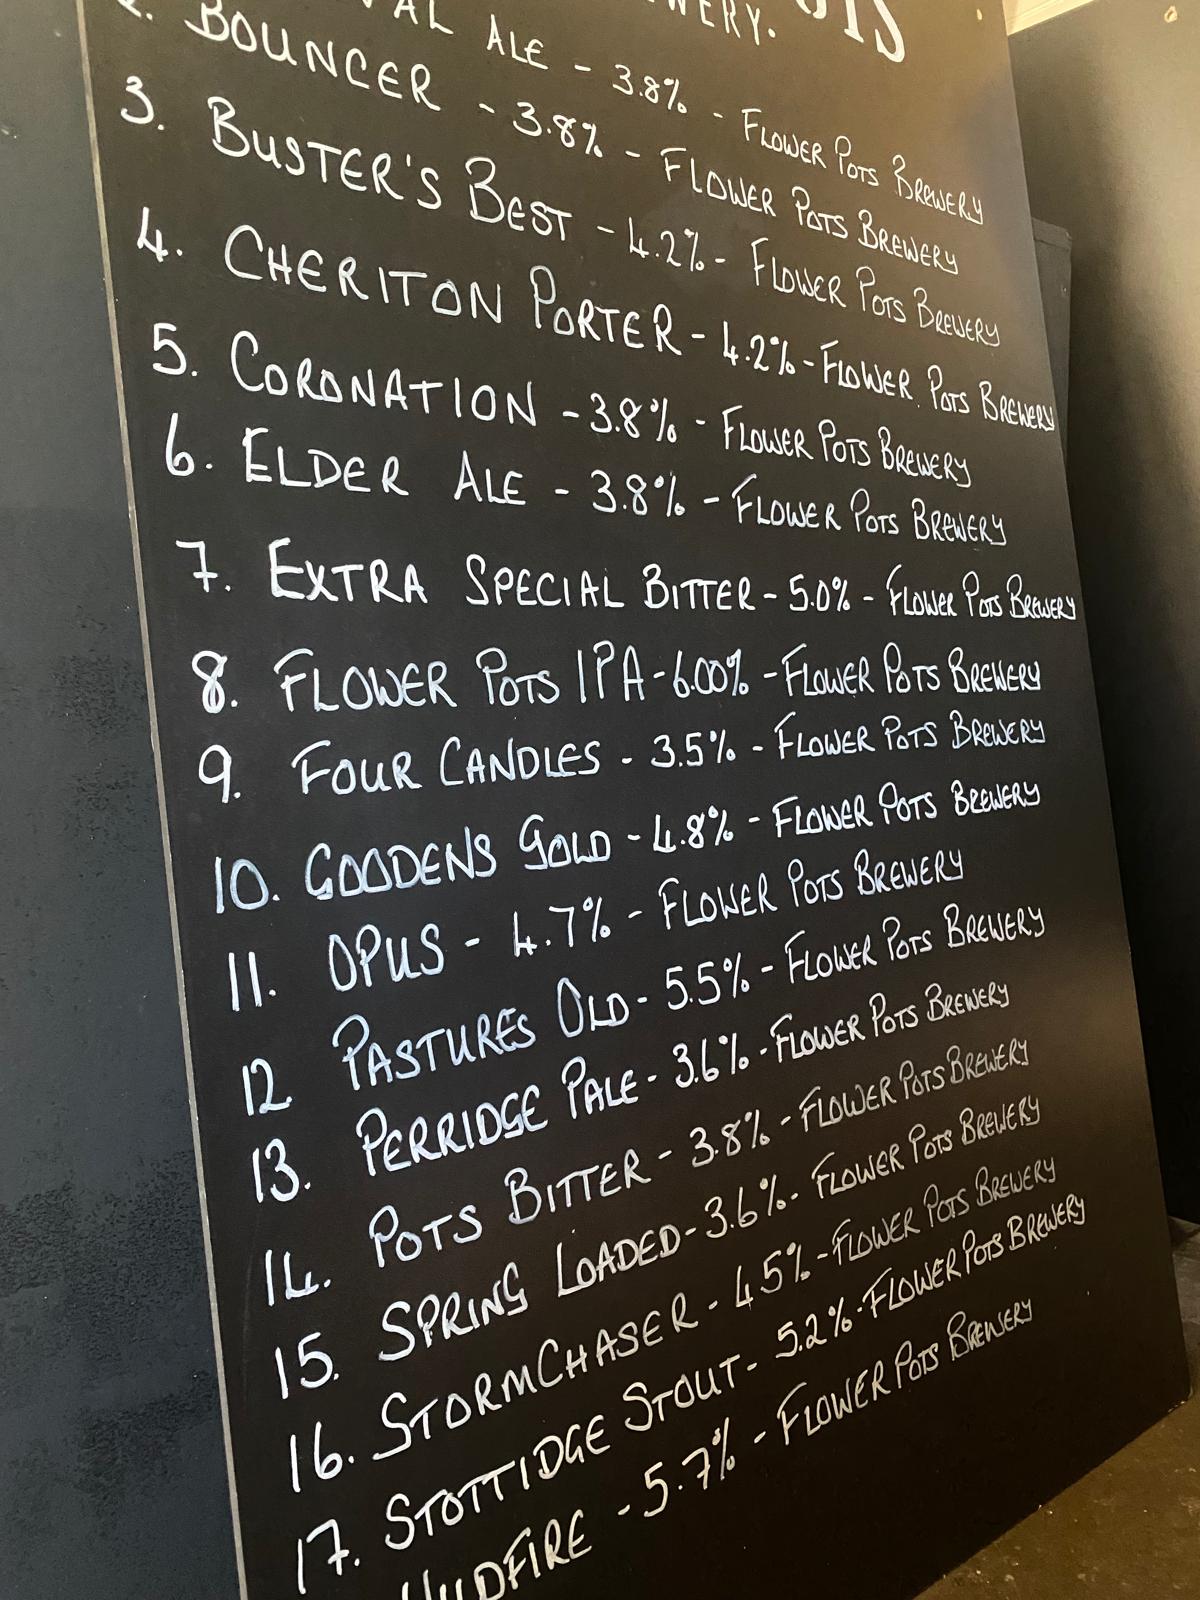 ALE - 3.8% - FLOWER POTS BREWERY
BOUNCER - 3.8% - FLOWER POTS BREWERY
3. BUSTER'S BEST - 4.2% - FLOWER POTS BREWERY
4. CHERITON PORTER - 4.2% - FLOWER POTS BREWERY
5. CORONATION - 3.8% - FLOWER POTS BREWERY
6. ELDER ALE - 3.8% - FLOWER POTS BREWERY
7. EXTRA SPECIAL BITTER - 5.0% - FLOWER POTS BREWERY
8. FLOWER POTS IPA - 6.00% - FLOWER POTS BREWERY
9. FOUR CANDLES - 3.5% - FLOWER POTS BREWERY
10. GOODENS GOLD - 4.8% - FLOWER POTS BREWERY
11. OPUS - 4.7% - FLOWER POTS BREWERY
12 PASTURES OLD - 5.5% - FLOWER POTS BREWERY
13. PERRIDGE PALE - 3.6% - FLOWER POTS BREWERY
14. POTS BITTER - 3.8% - FLOWER POTS BREWERY
15. SPRING LOADED - 3.6% - FLOWER POTS BREWERY
16. STORMCHASER - 4.5% - FLOWER POTS BREWERY
17. STOTTIDGE STOUT - 5.2% - FLOWER POTS BREWERY
WILDFIRE - 5.7% - FLOWER POTS BREWERY